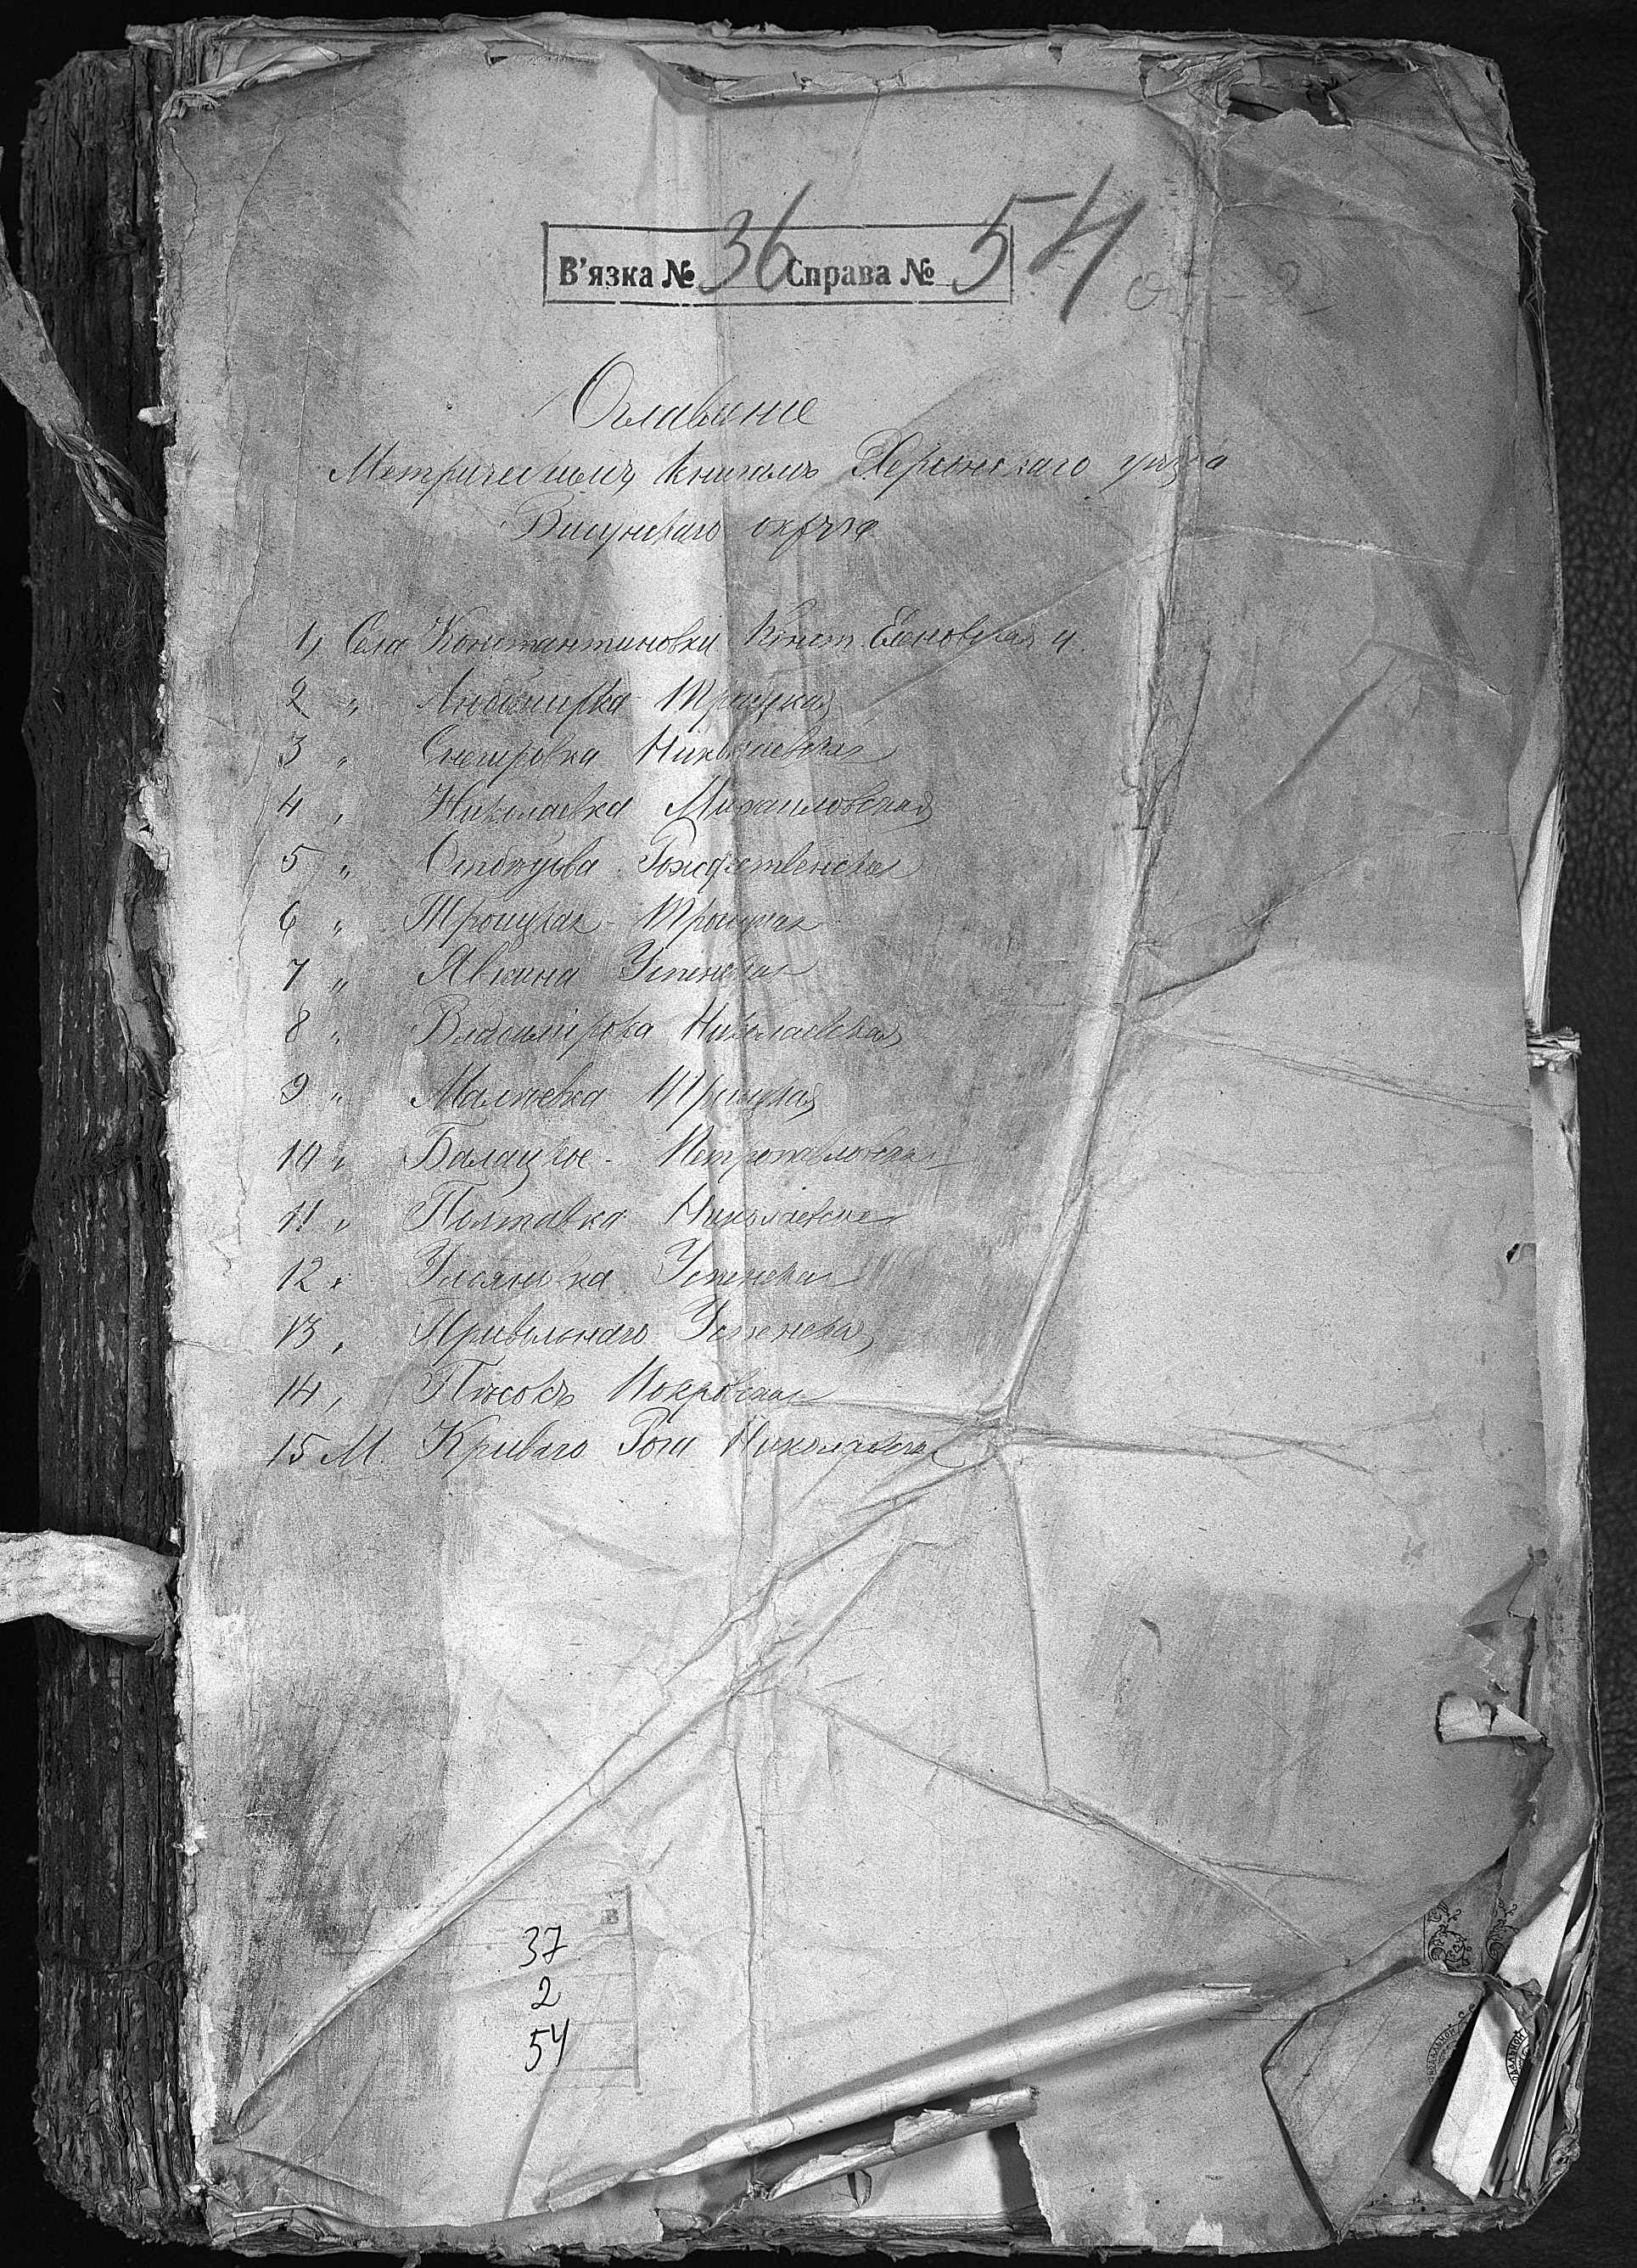 В'язка № 36 Справа № 54
Оглавление
Метрическимъ книгамъ Херсонскаго уѣзда
Висунскаго округа
1, Села Константиновки Конст. Еленовская ц.
2 „ Любомирка Троицкая
3 „ Снегировка Николаевская
4 „ Николаевка Михаиловская
5 „ Отбѣдова Рождественская
6 „ Троицкая - Троицкая
7 „ Явкина Успенская
8 „ Владимірова Николаевская
9 „ Малѣевка Троицкая
10 „ Балацкое - Петропавловская
11 „ Полтавка Николаевская
12 „ Ульяновка Успенская
13 „ Привольнаго Успенская
14 „ Пѣсокъ Покровская
15 М. Криваго Рога Николаевская
37
2
54